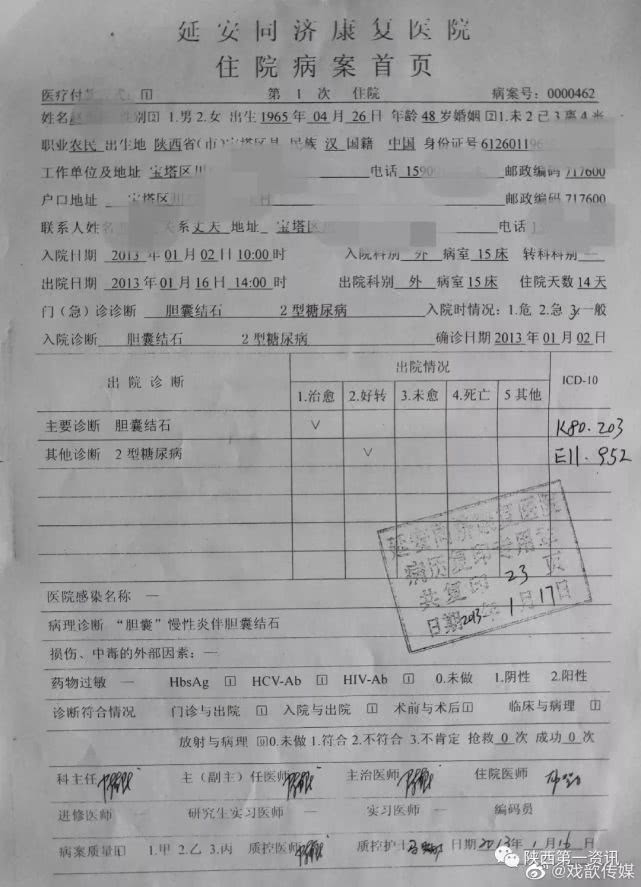 延安同济康复医院
住院病案首页
医疗付 1 第 1 次 住院 病案号：0000462
姓名 性别2 1.男2.女 出生1965年 04月 26日 年龄48岁婚姻2 1.未2已3离4
职业农民 出生地 陕西省(市)宝塔区县 民族 汉 国籍 中国 身份证号6126011965
工作单位及地址 宝塔区川 电话 1590 邮政编码717600
户口地址 宝塔区川 邮政编码717600
联系人姓名 关系丈夫 地址 宝塔区 电话
入院日期 2013年01月02日10:00时 入院科别 外 病室15床 转科科别 —
出院日期 2013年01月16日14:00时 出院科别 外 病室15床 住院天数14天
门（急）诊诊断 胆囊结石 2型糖尿病 入院时情况：1.危 2.急 3一般
入院诊断 胆囊结石 2型糖尿病 确诊日期2013年01月02日
出院诊断 出院情况 ICD-10
1.治愈 2.好转 3.未愈 4.死亡 5其他
主要诊断 胆囊结石 ∨ K80.203
其他诊断 2型糖尿病 ∨ E11.952
延安同济康复医院
病历复印专用章
共复印 23 页
日期2013年1月17日
医院感染名称 —
病理诊断 “胆囊”慢性炎伴胆囊结石
损伤、中毒的外部因素：—
药物过敏 — HbsAg 1 HCV-Ab 1 HIV-Ab 1 0.未做 1.阴性 2.阳性
诊断符合情况 门诊与出院 1 入院与出院 1 术前与术后1 临床与病理 1
放射与病理 0 0.未做 1.符合 2.不符合 3.不肯定 抢救0次 成功0次
科主任 主（副主）任医师 主治医师 住院医师
进修医师 — 研究生实习医师 — 实习医师 — 编码员
病案质量1 1.甲 2.乙 3.丙 质控医师 质控护士 日期2013年1月16日
陕西第一资讯
@戏歆传媒